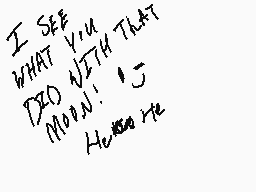 I SEE
WHAT YOU
DID WITH THAT
MOON! :)
He He